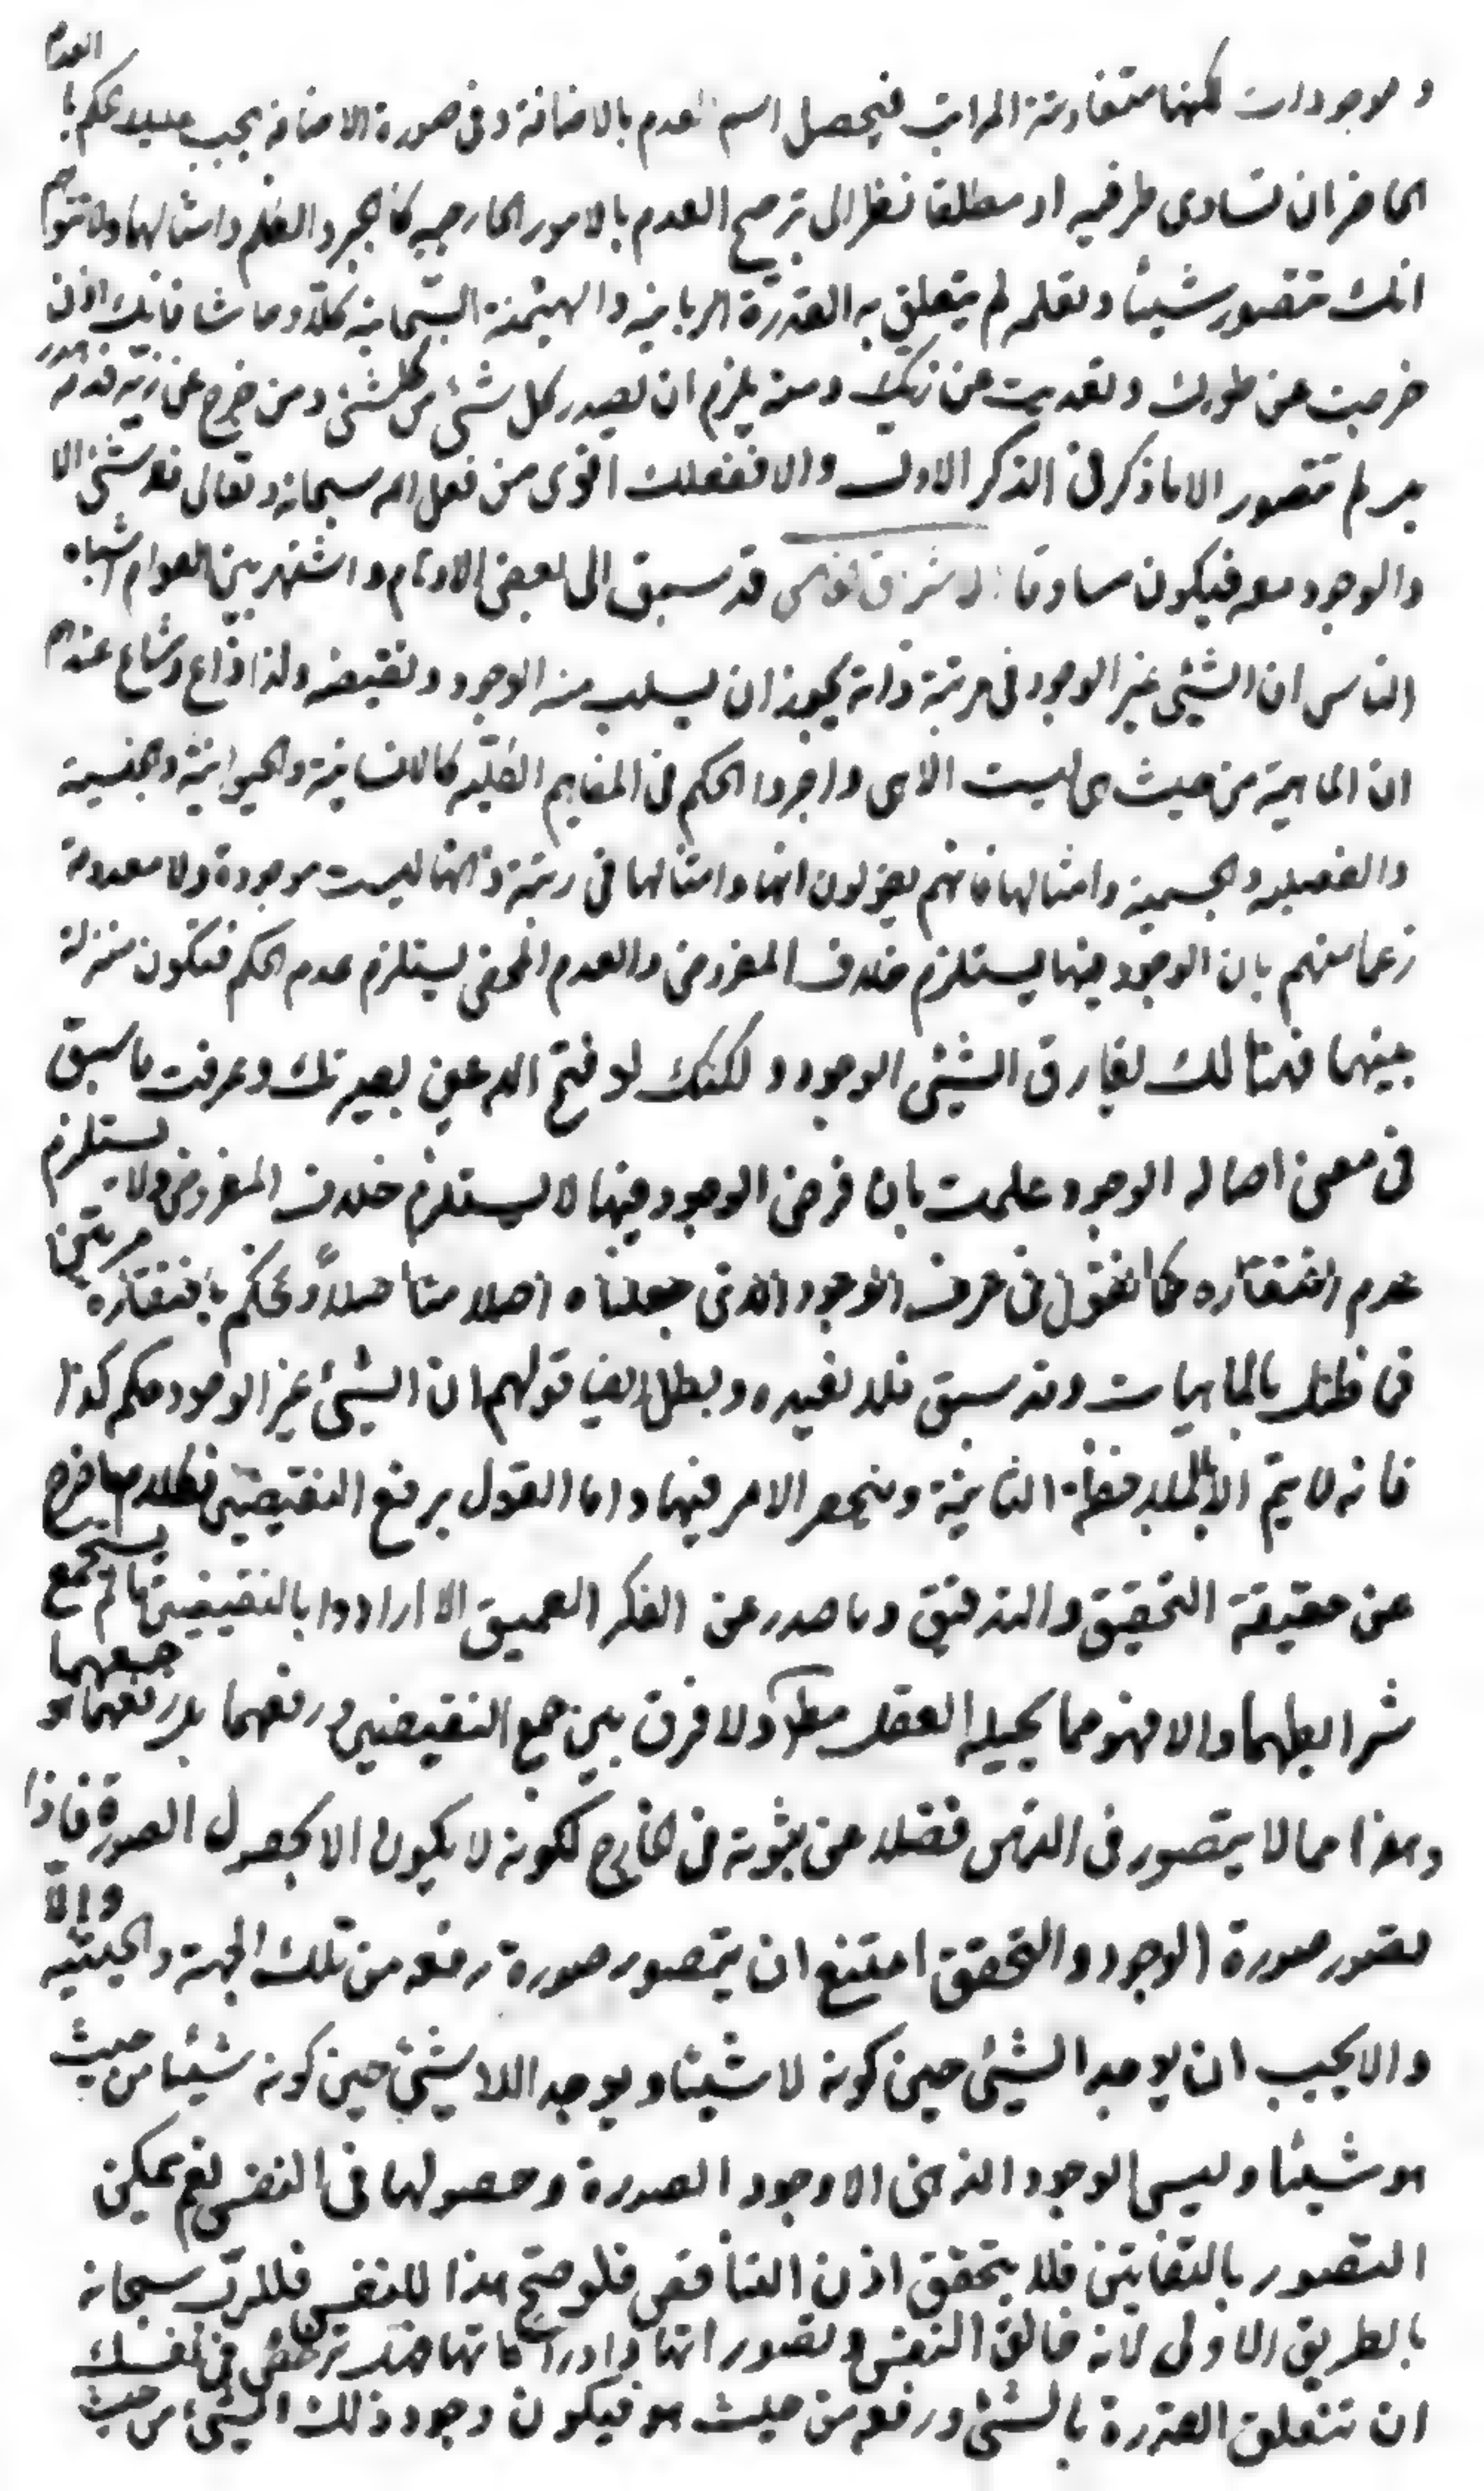 و موجودات لكنها متفاوتة المراتب فيحصل اسم العدم بالاضافة وفى صورة الاضافة يجب عليه العدم
الحاضران تساوى طرفيه او مطلقا نظرا الى ترجيح العدم بالامور الخارجيه كالحجر والظلم وامثالهما ولا تتوهم
انك تتصور شيئا وتعلمه لم يتعلق به القدرة الربانية والهيمنة السبحانية كلا وحاشا فانك اذن
خرجت عن طورك وتعديت عن زيك ومنه يلزم ان يصدر كل شئ من كلشئ ومن خرج عن زيه فدمه هدر
بل لم تتصور الا ما ذكر فى الذكر الاول والا ففعلك اقوى من فعل الله سبحانه وتعالى فلا شئ الا
والوجود معه فيكون مساوقا قد سبق الى بعض الاوهام واشتهر بين العوام اشباه
الناس ان الشيئ غير الوجود فى مرتبة ذاته يجوز ان يسلب منه الوجود ونقيضه ولذا ذاع وشاع عندهم
ان الماهية من حيث هى ليست الا هى واجروا الحكم فى المفاهيم الكلية كالانسانية والحيوانية والجنسية
والفصليه والجسمية وامثالها فانهم يقولون انها وامثالها فى رتبة ذاتها ليست موجودة ولا معدومة
زعما منهم بان الوجود فيها يستلزم خلاف المفروض والعدم المحض يستلزم عدم الحكم فتكون منزلة
بينهما فهنالك يفارق الشيئ الوجود ولكنك لو فتح الله عين بصيرتك وعرفت ما سبق
فى معنى اصالة الوجود علمت بان فرض الوجود فيها لا يستلزم خلاف المفروض ولا يستلزم
عدم افتقاره كما نقول فى طرف الوجود الذى جعلناه اصلا متاصلا ونحكم بافتقاره مرتين
فما ظنك بالماهيات وقد سبق فلا نعيده وبطل ايضا قولهم ان الشيئ غير الوجود حكم كذا
فانه لا يتم الا بملاحظة الثانية وينحصر الامر فيها واما القول برفع النقيضين فكلام ما خرج
عن حقيقة التحقيق والتدقيق وما صدر عن الفكر العميق الا ارادوا بالنقيضين ما لم يستجمع
شرايطهما والا فهو مما يحيله العقل ولا فرق بين جمع النقيضين ورفعهما بل رفعهما هو جمعهما
وهذا مما لا يتصور فى الذهن فضلا عن ثبوته فى الخارج لكونه لا يكون الا بحصول الصورة فاذا
تصور صورة الوجود والتحقق امتنع ان يتصور صورة رفعه من تلك الجهة والحيثيه والا
والا يجب ان يوجد الشيئ حين كونه لا شيئا ويوجد اللا شيئ حين كونه شيئا من حيث
هو شيئا وليس الوجود الذهنى الا وجود الصورة وحصولها فى النفس نعم يمكن
التصور بالتفاتين فلا يتحقق اذن التناقض فلو صح هذا للنفس فللرب سبحانه
بالطريق الاولى لانه خالق النفس وتصوراتها وادراكاتها فهل ترتضى فى نفسك
ان تتعلق القدرة بالشئ ورفعه من حيث هو فيكون وجود ذلك الشيئ من حيث